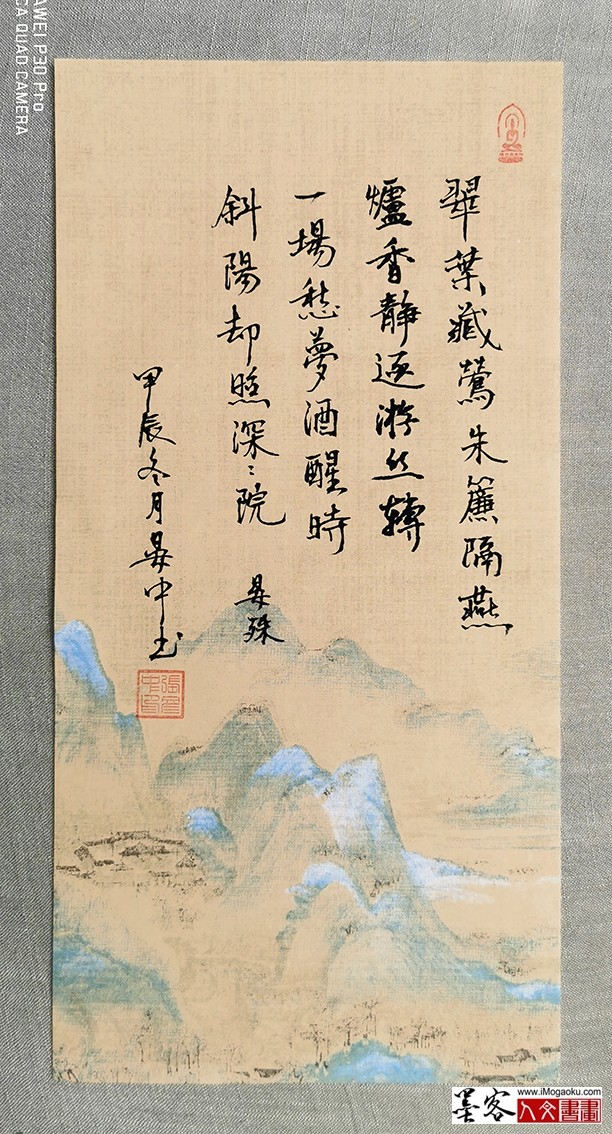 翠葉藏鶯朱簾隔燕
爐香静逐游丝轉
一場愁夢酒醒時
斜陽却照深〻院
晏殊
甲辰冬月晏中书
AWEI P30 Pro
CA QUAD CAMERA
墨客
www.iMogaoku.com
人文書畫